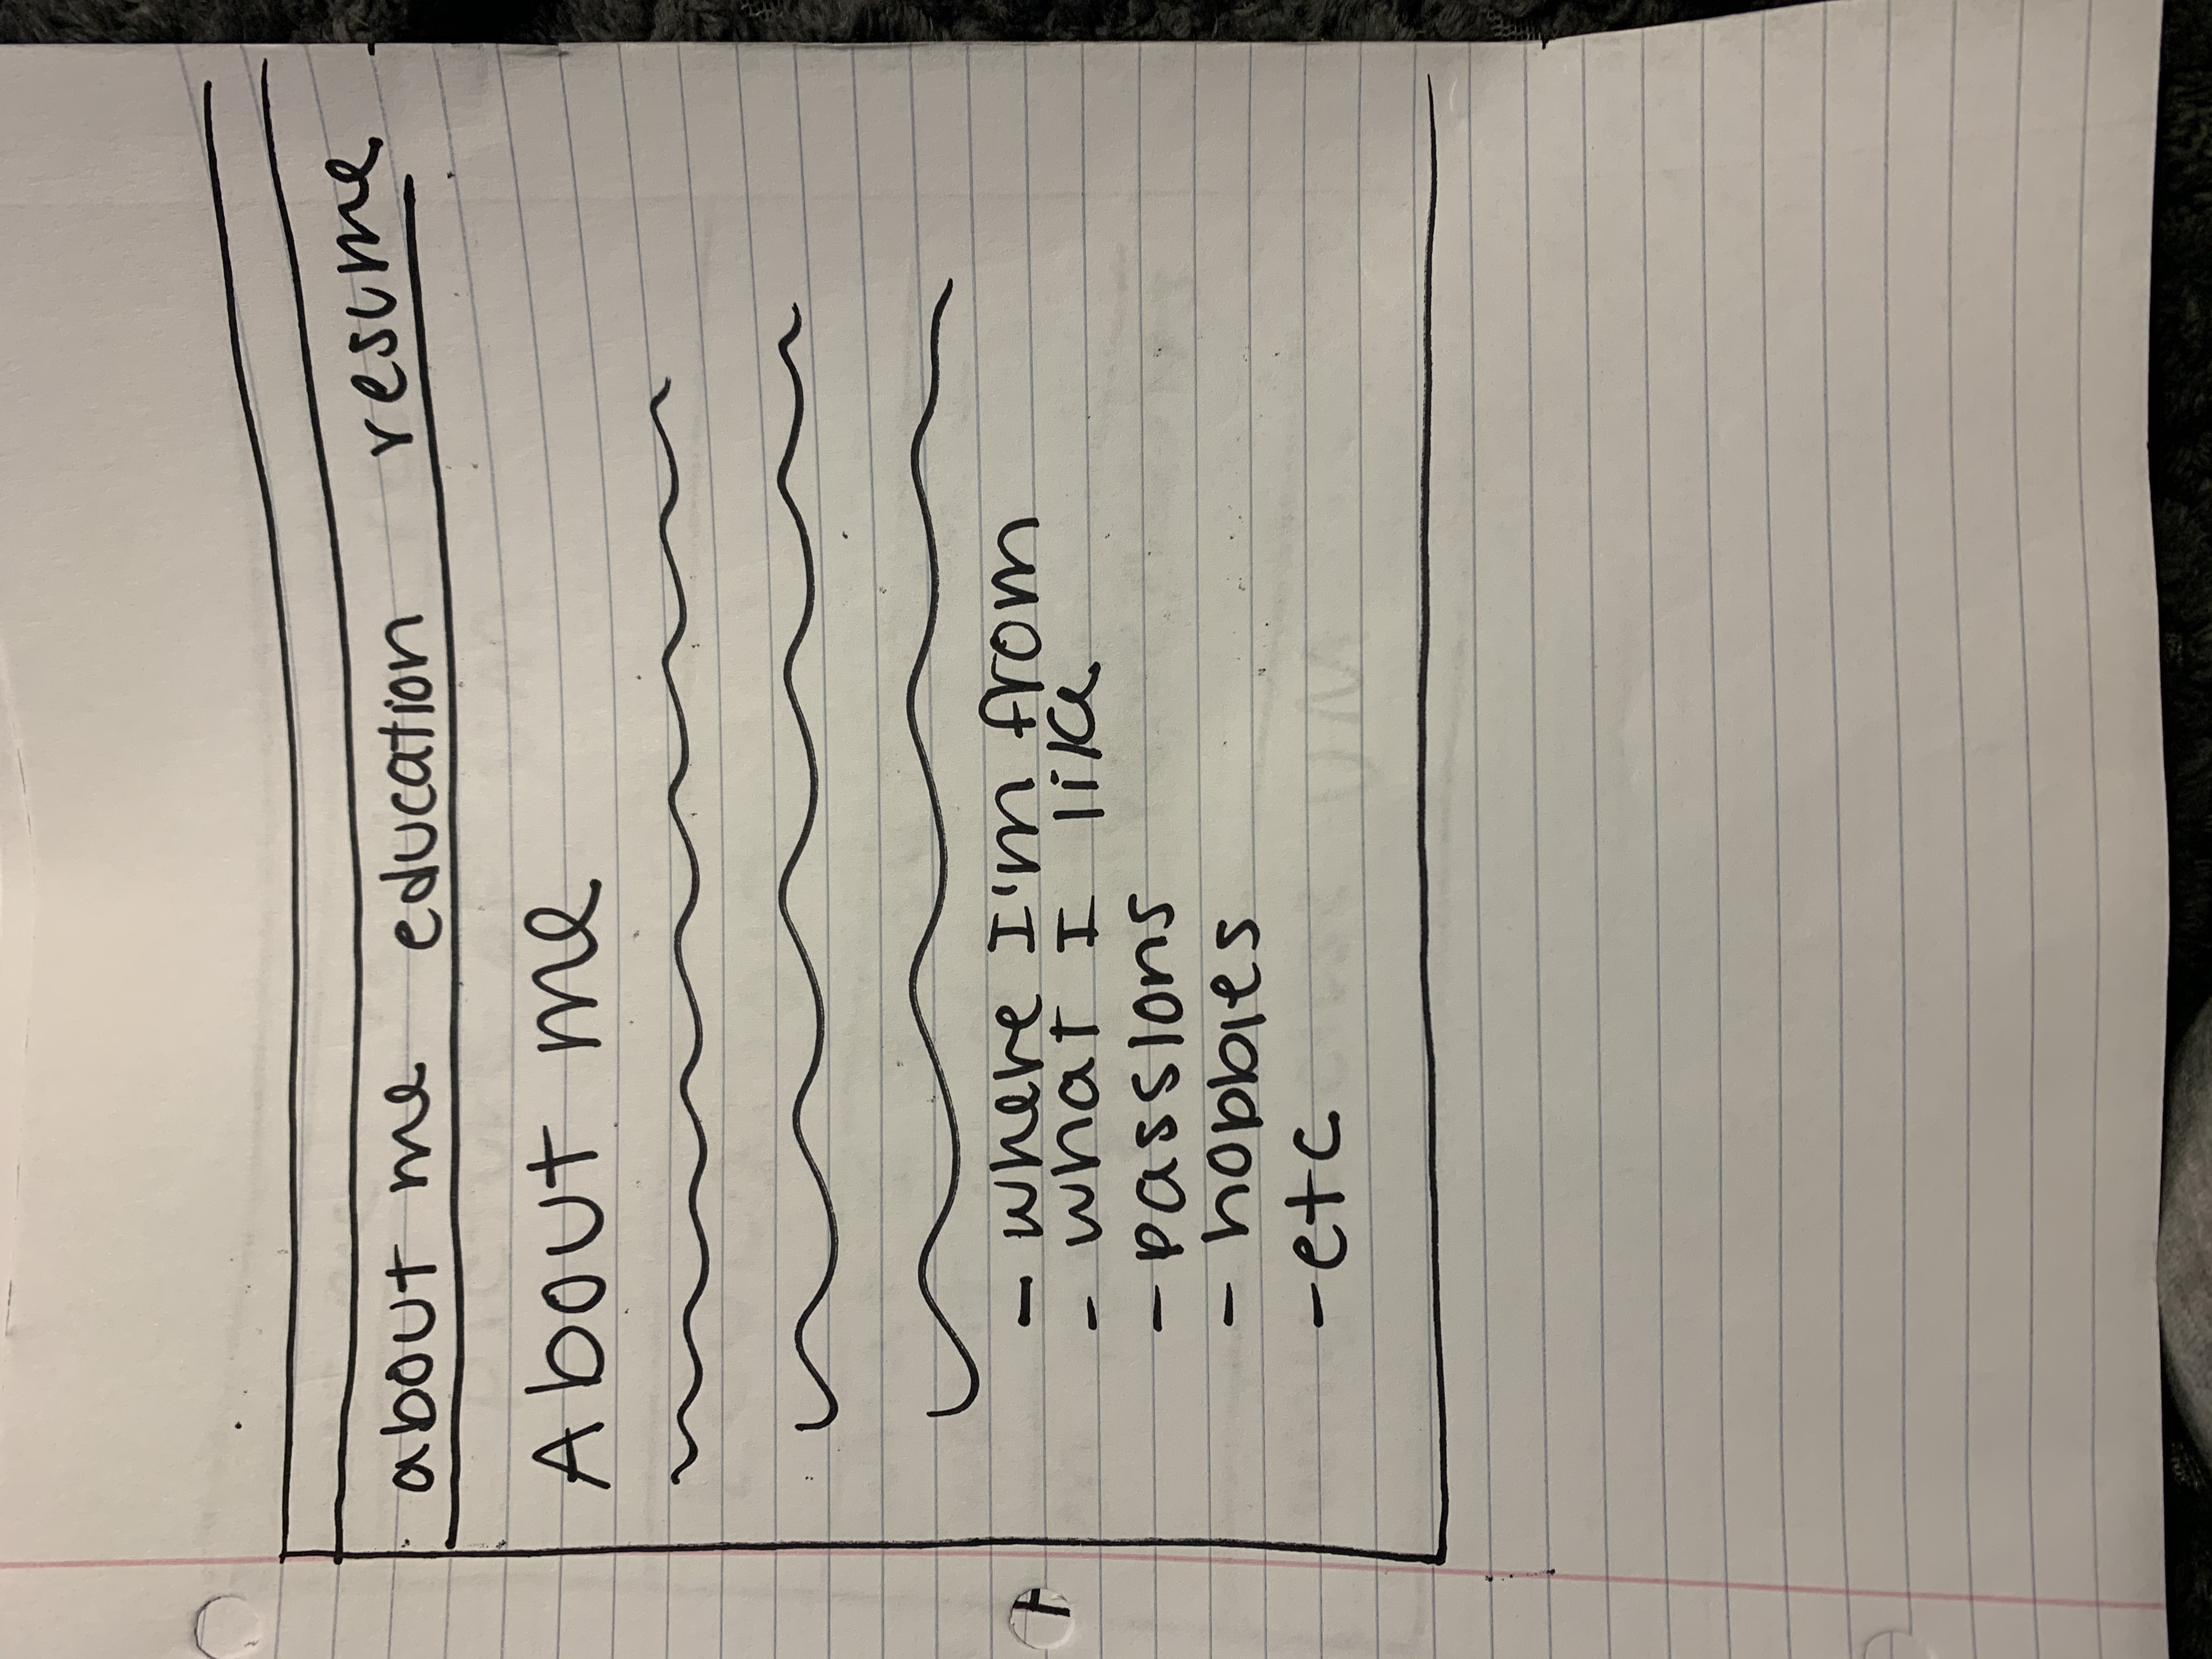 about me education resume
About me
- where I'm from
- what I like
- passions
- hobbies
- etc